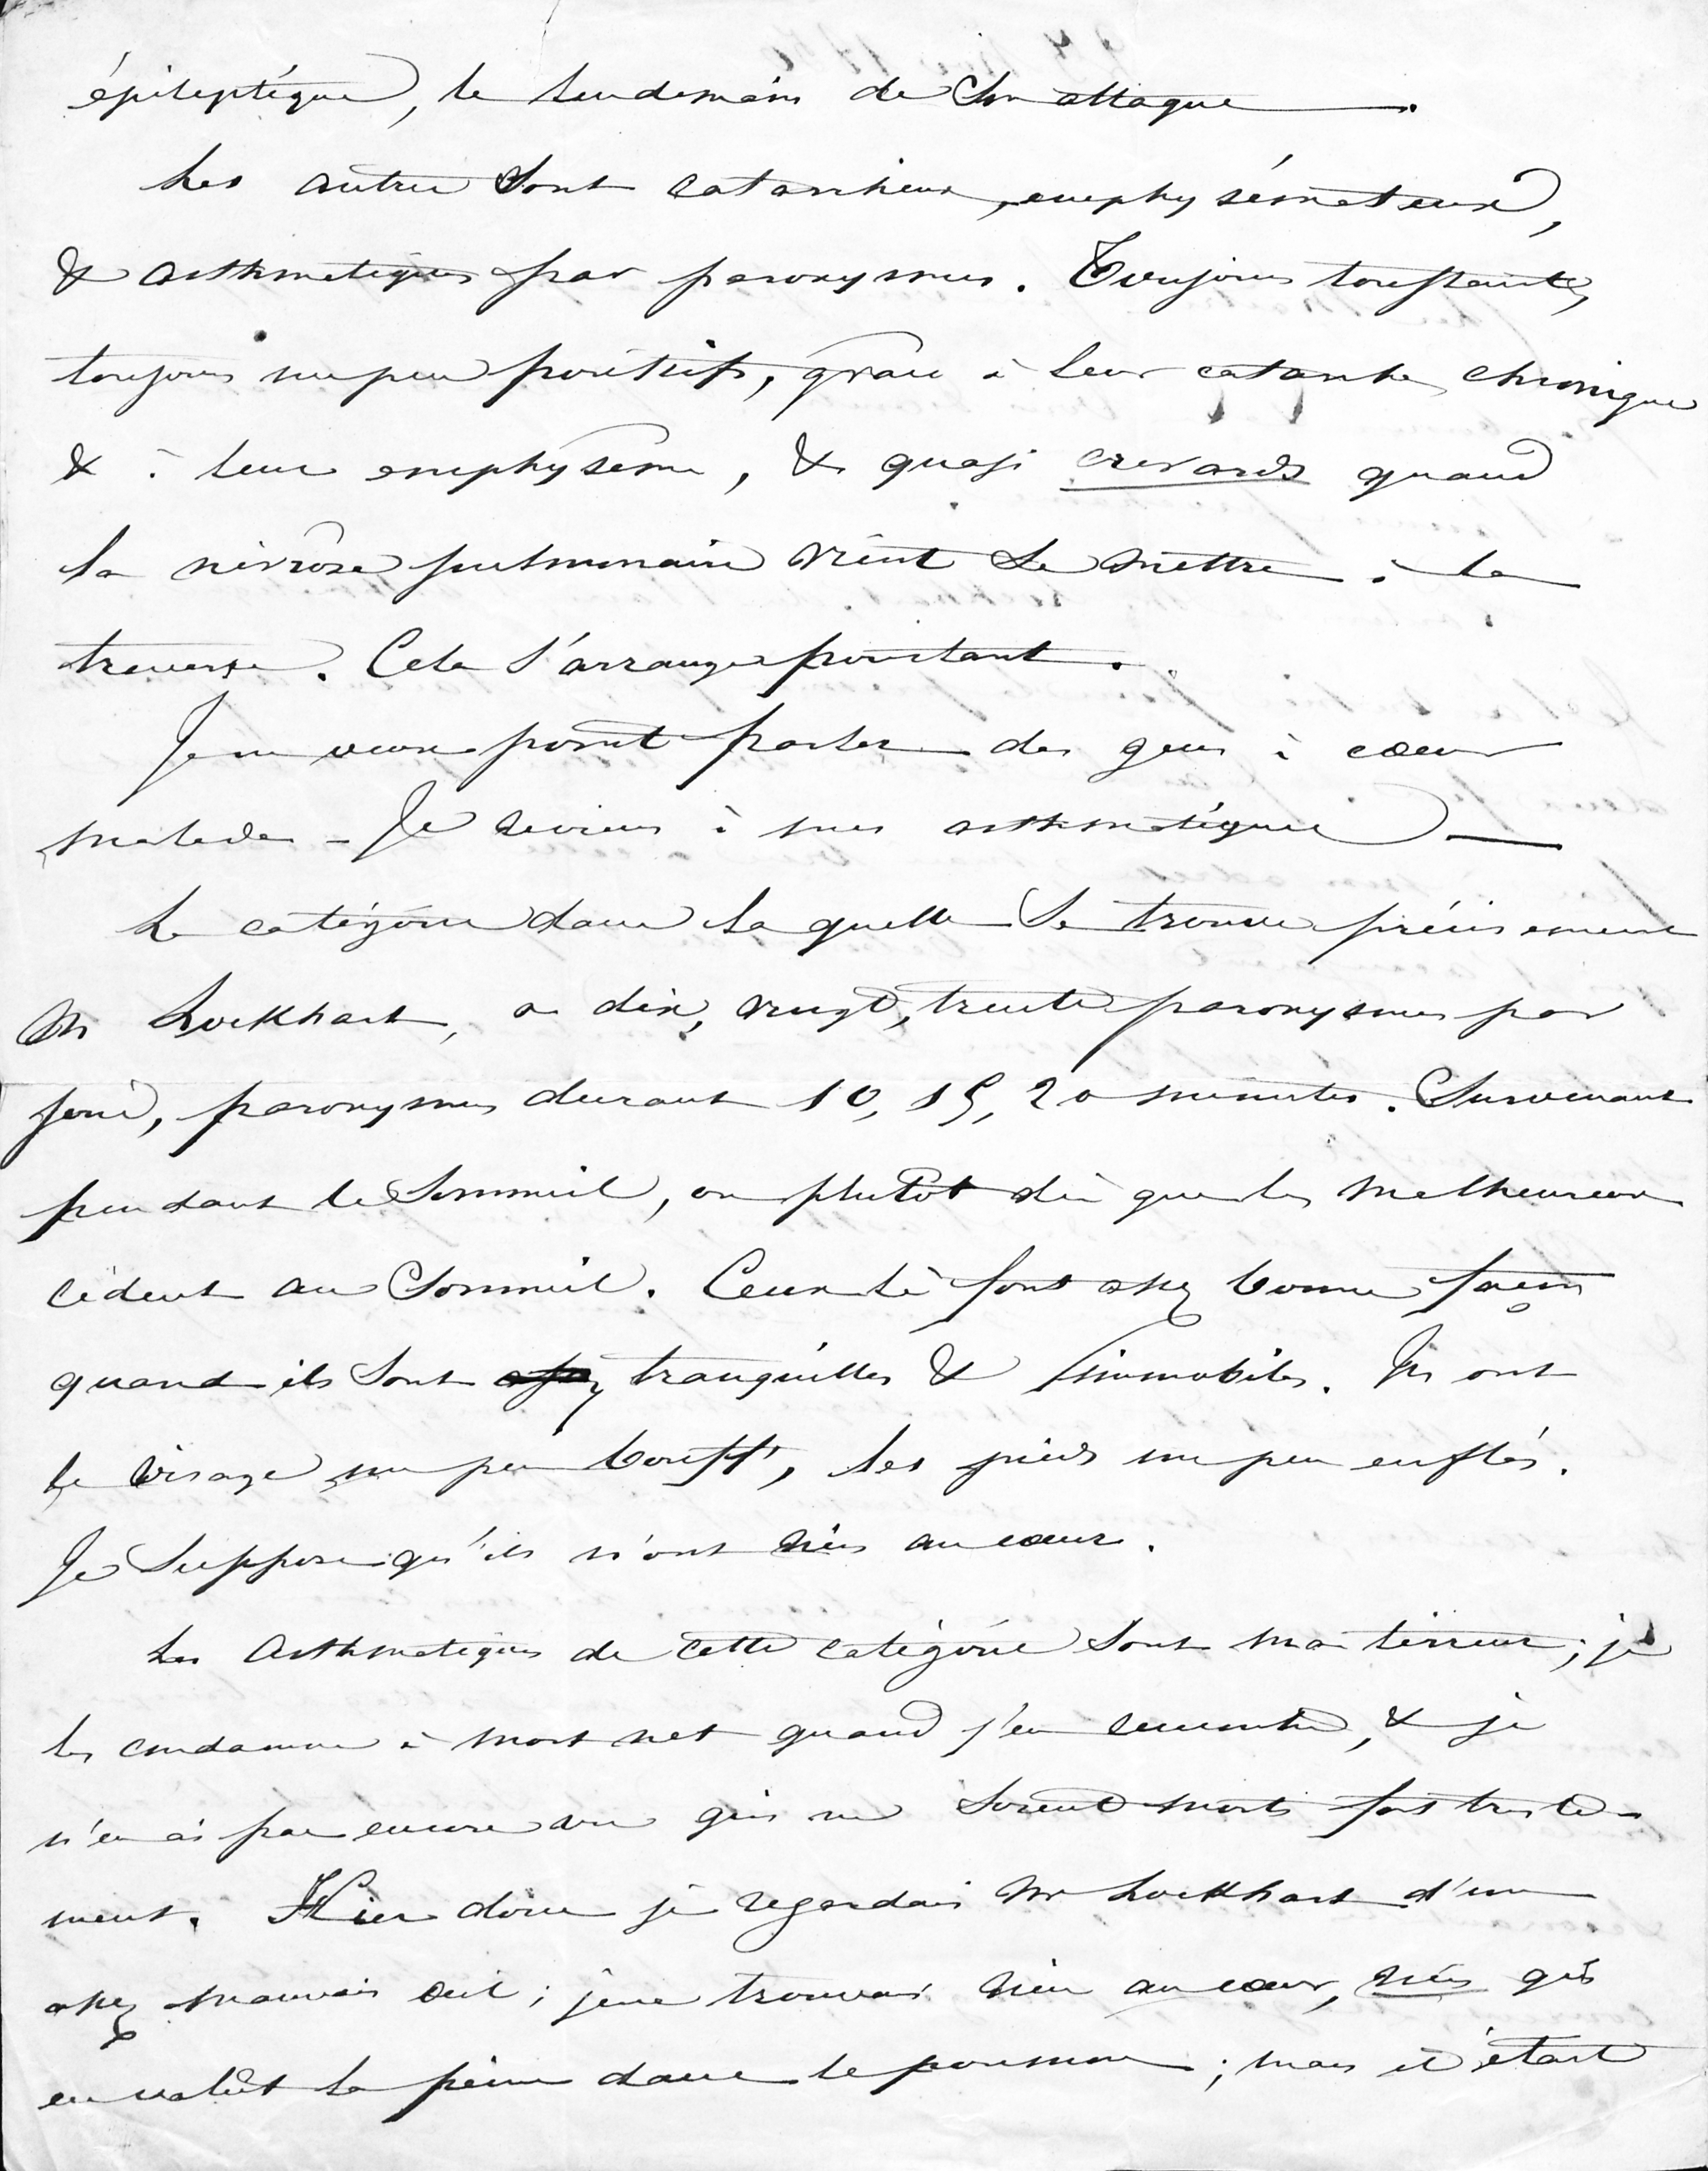 épileptique, le lendemain de son attaque.
Les autres sont catarrheux, emphysémateux,
& asthmatiques par paroxysmes. Toujours toussants,
toujours un peu poussifs, grâce à leur catarrhe chronique
& à leur emphysème, & quasi crevards quand
la névrose pulmonaire vient se mettre à la
traverse. Cela s'arrange pourtant.
Je ne veux point parler des gens à cœur
malade - Je reviens à mes asthmatiques —
La catégorie dans laquelle se trouve précisément
Mr Lockhart, a dix, vingt, trente paroxysmes par
jour, paroxysmes durant 10, 15, 20 minutes. Survenant
pendant le sommeil, ou plutôt dès que les malheureux
cèdent au sommeil. Ceux là font assez bonne façon
quand ils sont assez tranquilles & immobiles. Ils ont
le visage un peu bouffi, les pieds un peu enflés.
Je suppose qu'ils n'ont rien au cœur.
Les asthmatiques de cette catégorie sont ma terreur; je
les condamne à mort net quand j'en rencontre, & je
n'en ai pas encore vu qui ne soient morts fort triste-
ment. Hier donc je regardais Mr Lockhart d'un
assez mauvais œil; je ne trouvais rien au cœur, rien qui
en valût la peine dans le poumon; mais il était